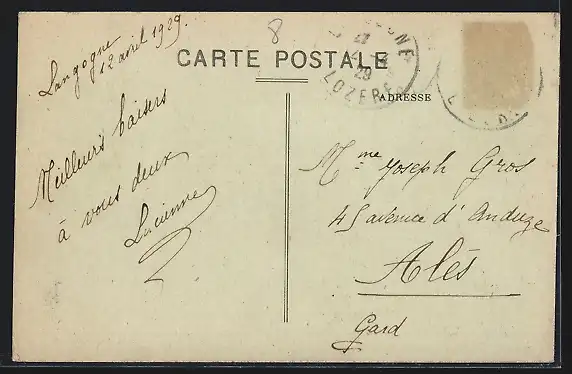 8
Langogne
12 avril 1929.
CARTE POSTALE
LOZERE
ADRESSE
Meilleurs baisers
à vous deux
Lucienne
Mme Joseph Gros
45 avenue d'Anduze
Alès
Gard